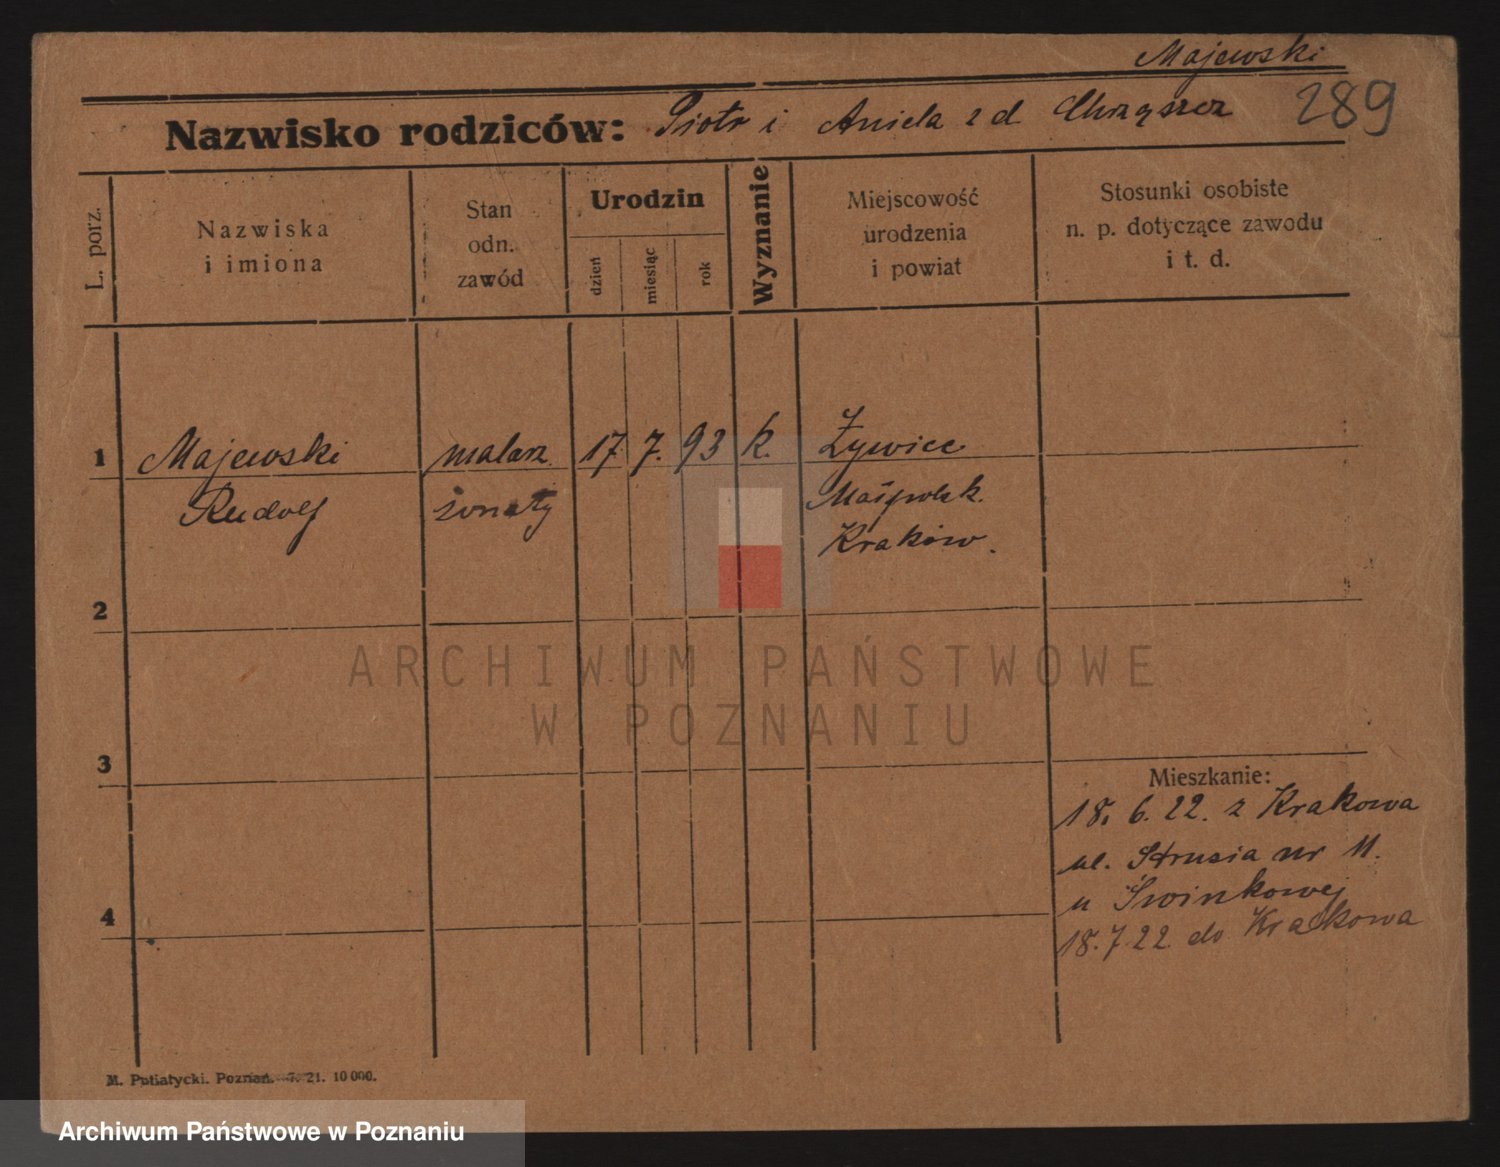 Majewski
Nazwisko rodziców: Piotr i Aniela z d. Chrząszcz 289
L. porz.
Nazwiska
i imiona
Stan
odn.
zawód
Urodzin
dzień
miesiąc
rok
Wyznanie
Miejscowość
urodzenia
i powiat
Stosunki osobiste
n. p. dotyczące zawodu
i t. d.
1 Majewski malarz 17. 7. 93 k. Żywiec
Rudolf żonaty
Kraków.
2
3
Mieszkanie:
18. 6. 22. z Krakowa
ul. Strusia nr 11.
u Świnkowej
4
18. 7 22 do Krakowa
M. Putiatycki. Poznań. 21. 10 000.
ARCHIWUM PAŃSTWOWE
W POZNANIU
Archiwum Państwowe w Poznaniu